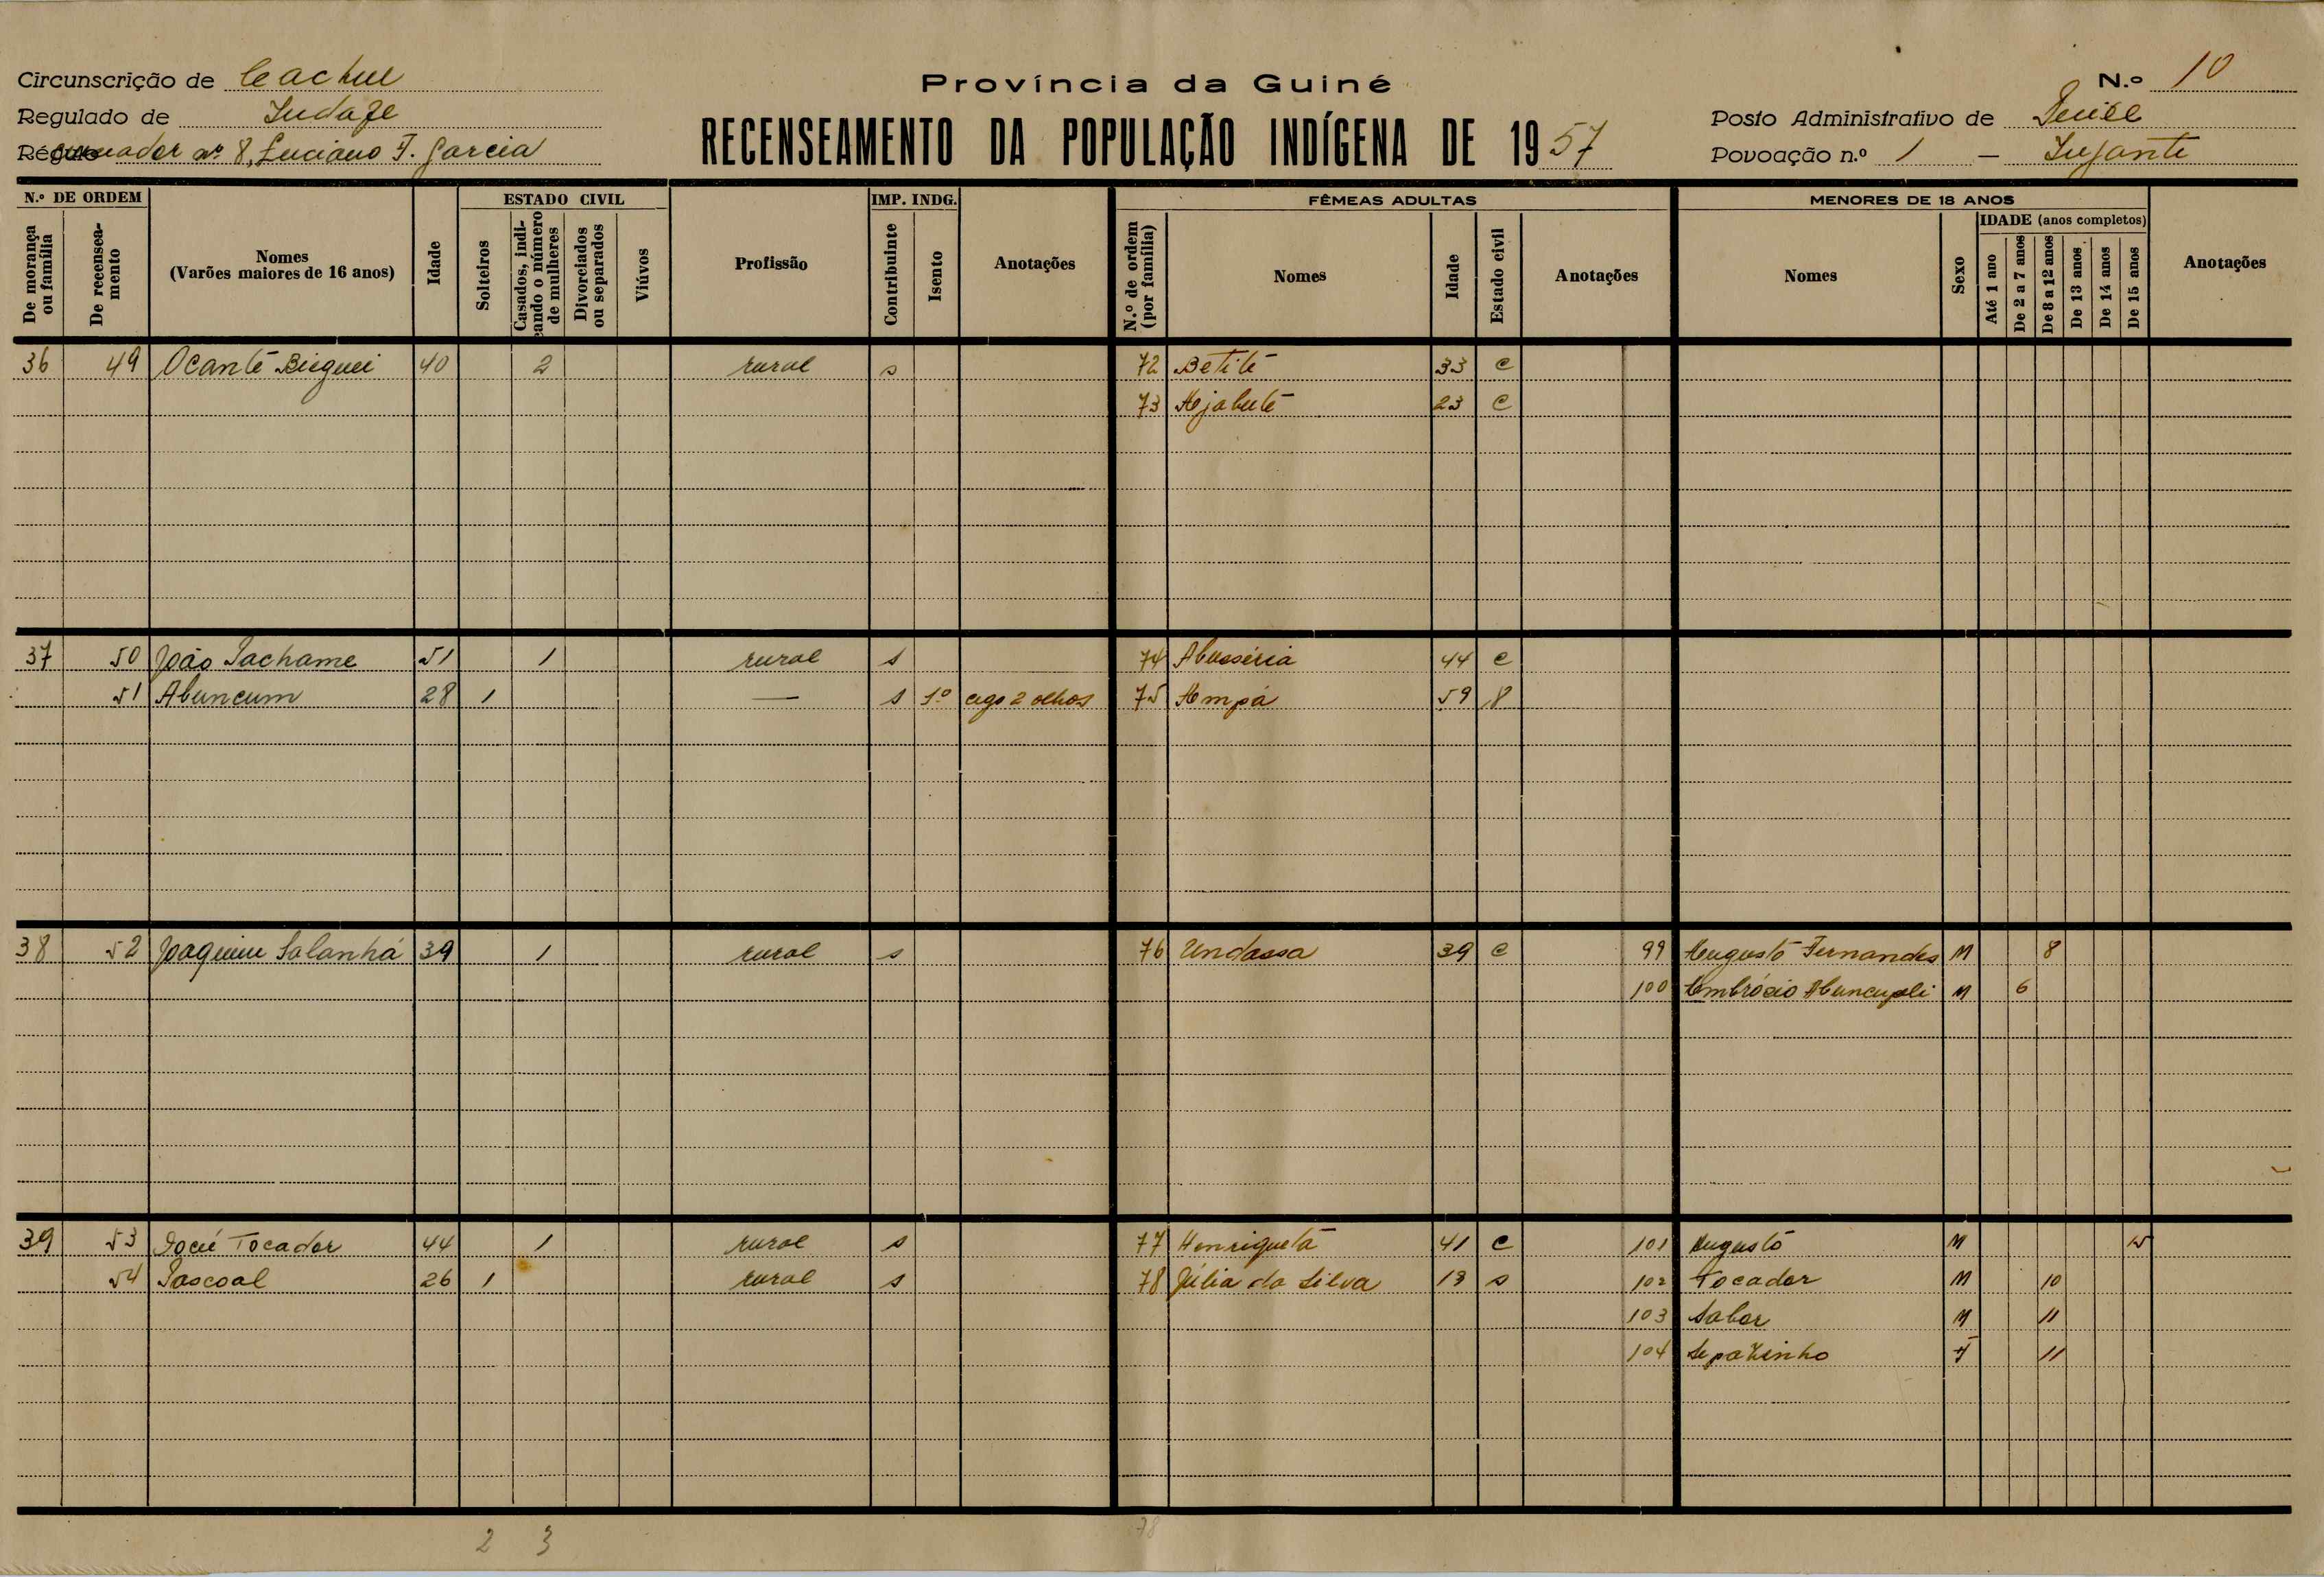 Circunscrição de Cacheu
Província da Guiné
N.º 10
Regulado de
Posto Administrativo de
RECENSEAMENTO DA POPULAÇÃO INDÍGENA DE 1957
nº 8, Luciano F. Garcia
Povoação n.º 1 –
N.º DE ORDEM
De morança ou família
De recenseamento
Nomes
(Varões maiores de 16 anos)
Idade
ESTADO CIVIL
Solteiros
Casados, indicando o número de mulheres
Divorciados ou separados
Viúvos
Profissão
IMP. INDG.
Contribuinte
Isento
Anotações
FÊMEAS ADULTAS
N.º de ordem (por família)
Nomes
Idade
Estado civil
Anotações
MENORES DE 18 ANOS
Nomes
Sexo
IDADE (anos completos)
Até 1 ano
De 2 a 7 anos
De 8 a 12 anos
De 13 anos
De 14 anos
De 15 anos
Anotações
36 49 Ocante 40 2 rural s 72 Betité 33 C
73 23 C
37 50 João 51 1 rural s 74 44 C
51 Abuncum 28 1 — s 1º cego 2 olhos 75 Ampá 59
38 52 Joaquim Salanhá 39 1 rural s 76 Undassa 39 C 99 Augusto Fernandes M 8
100 Ambrósio M 6
39 53 José Tocador 44 1 rural s 77 Henriqueta 41 C 101 Augusto M 15
54 Pascoal 26 1 rural s 78 Júlia da Silva s 102 Tocador M 10
103 M 11
104 F 11
2 3 78